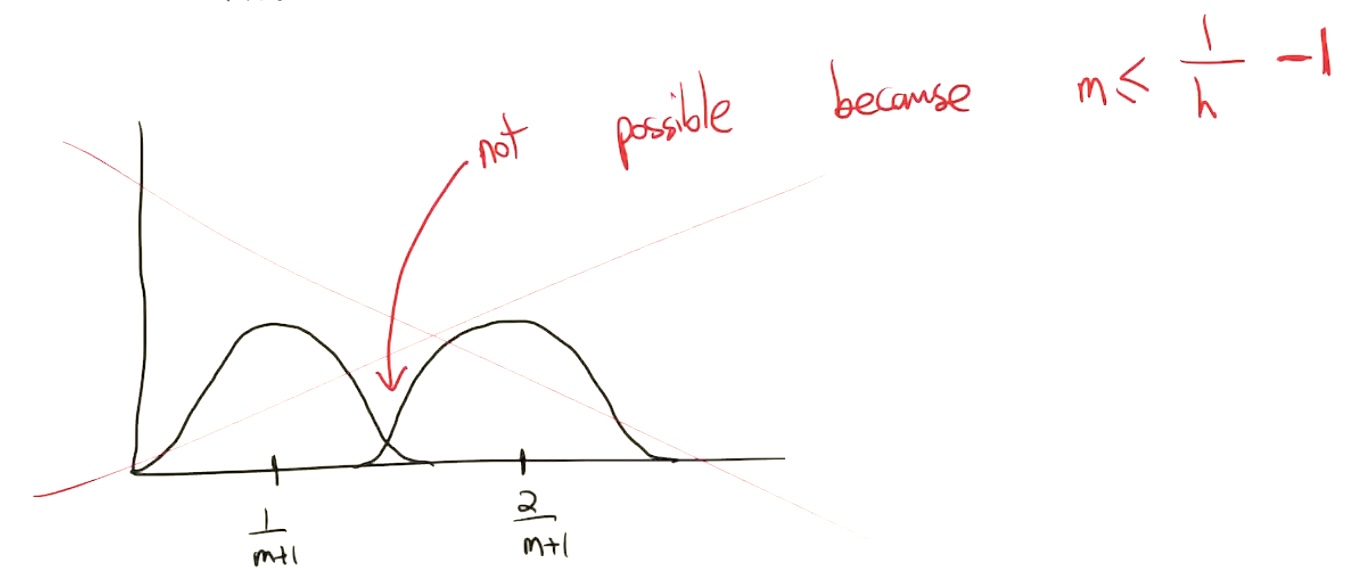 not possible because m ≤ 1/h - 1
1/m+1 2/m+1